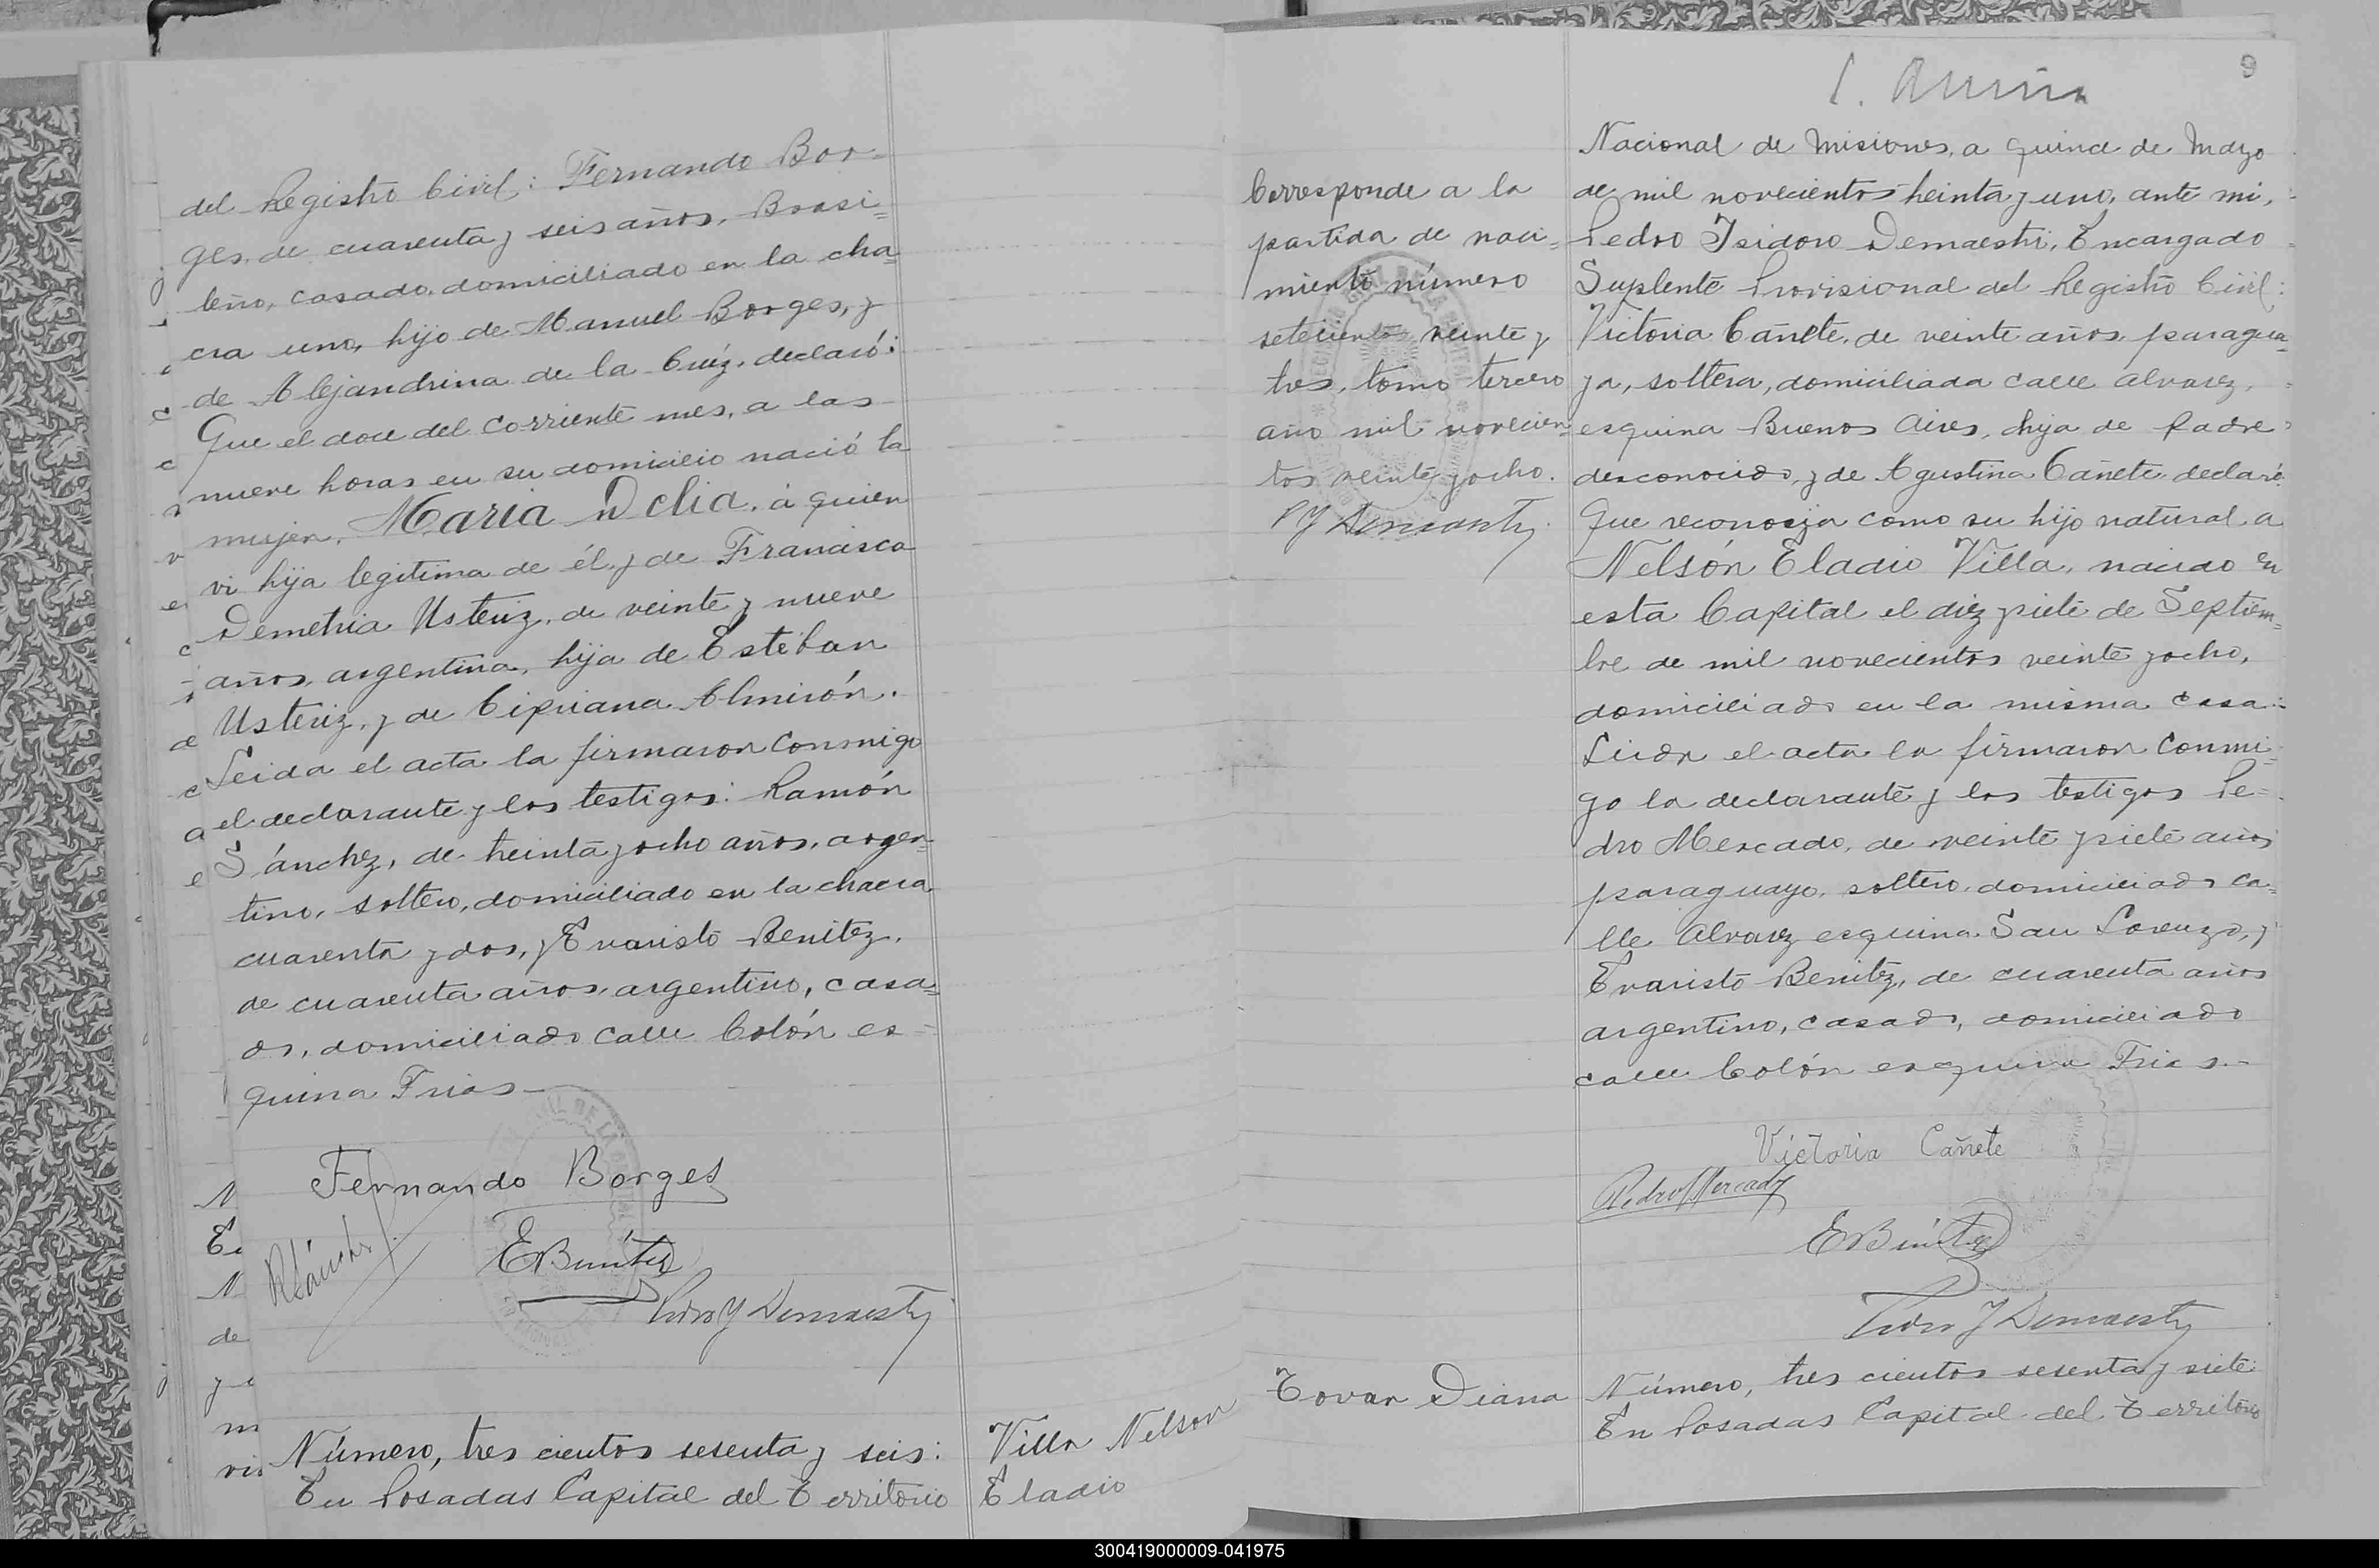 del Registro Civil: Fernando Bor-
ges, de cuarenta y seis años, Brasi=
leño, casado, domiciliado en la cha=
cra uno, hijo de Manuel Borges, y
de Alejandrina de la Cruz, declaró:
Que el doce del corriente mes, a las
nueve horas en su domicilio nació la
mujer, María Delia, á quien
vi hija legitima de él y de Francisca
Demetria Usteriz, de veinte y nueve
años, argentina, hija de Esteban
Usteriz, y de Cipriana Almirón.
Leida el acta la firmaron conmigo
el declarante y los testigos: Ramón
Sánchez, de treinta y ocho años, argen-
tino, soltero, domiciliado en la chacra
cuarenta y dos, y Evaristo Benitez,
de cuarenta años, argentino, casa=
do, domiciliado calle Colón es=
quina Frias-
Fernando Borges
RSánchez
EBenítez
Pedro Y Demaestri
Número, tres cientos sesenta y seis:
En Posadas Capital del Territorio
Villa Nelson
Eladio
9
Corresponde a la
partida de naci=
miento número
setecientos veinte y
tres, tomo tercero
año mil novecien=
tos veinte y ocho.
P Y Demaestri
Nacional de Misiones, a quince de Mayo
de mil novecientos treinta y uno, ante mi,
Pedro Isidoro Demaestri, Encargado
Suplente Provisional del Registro Civil:
Victoria Cañete, de veinte años, paragua=
ya, soltera, domiciliada calle Alvarez,
esquina Buenos Aires, hija de Padre
desconocido, y de Agustina Cañete, declaró:
Que reconocía como su hijo natural a
Nelsón Eladio Villa, nacido en
esta Capital el diez y siete de Septiem=
bre de mil novecientos veinte y ocho,
domiciliado en la misma casa:
Leida el acta la firmaron conmi=
go la declarante y los testigos Pe=
dro Mercado, de veinte y siete años
paraguayo, soltero, domiciliado ca=
lle Alvarez esquina San Lorenzo, y
Evaristo Benitez, de cuarenta años
argentino, casado, domiciliado
calle Colón esquina Frias.-
Victoria Cañete
Pedro Mercado
EBenítez
Pedro Y Demaestri
Tovar Diana
Número, tres cientos sesenta y siete:
En Posadas Capital del Territorio
300419000009-041975